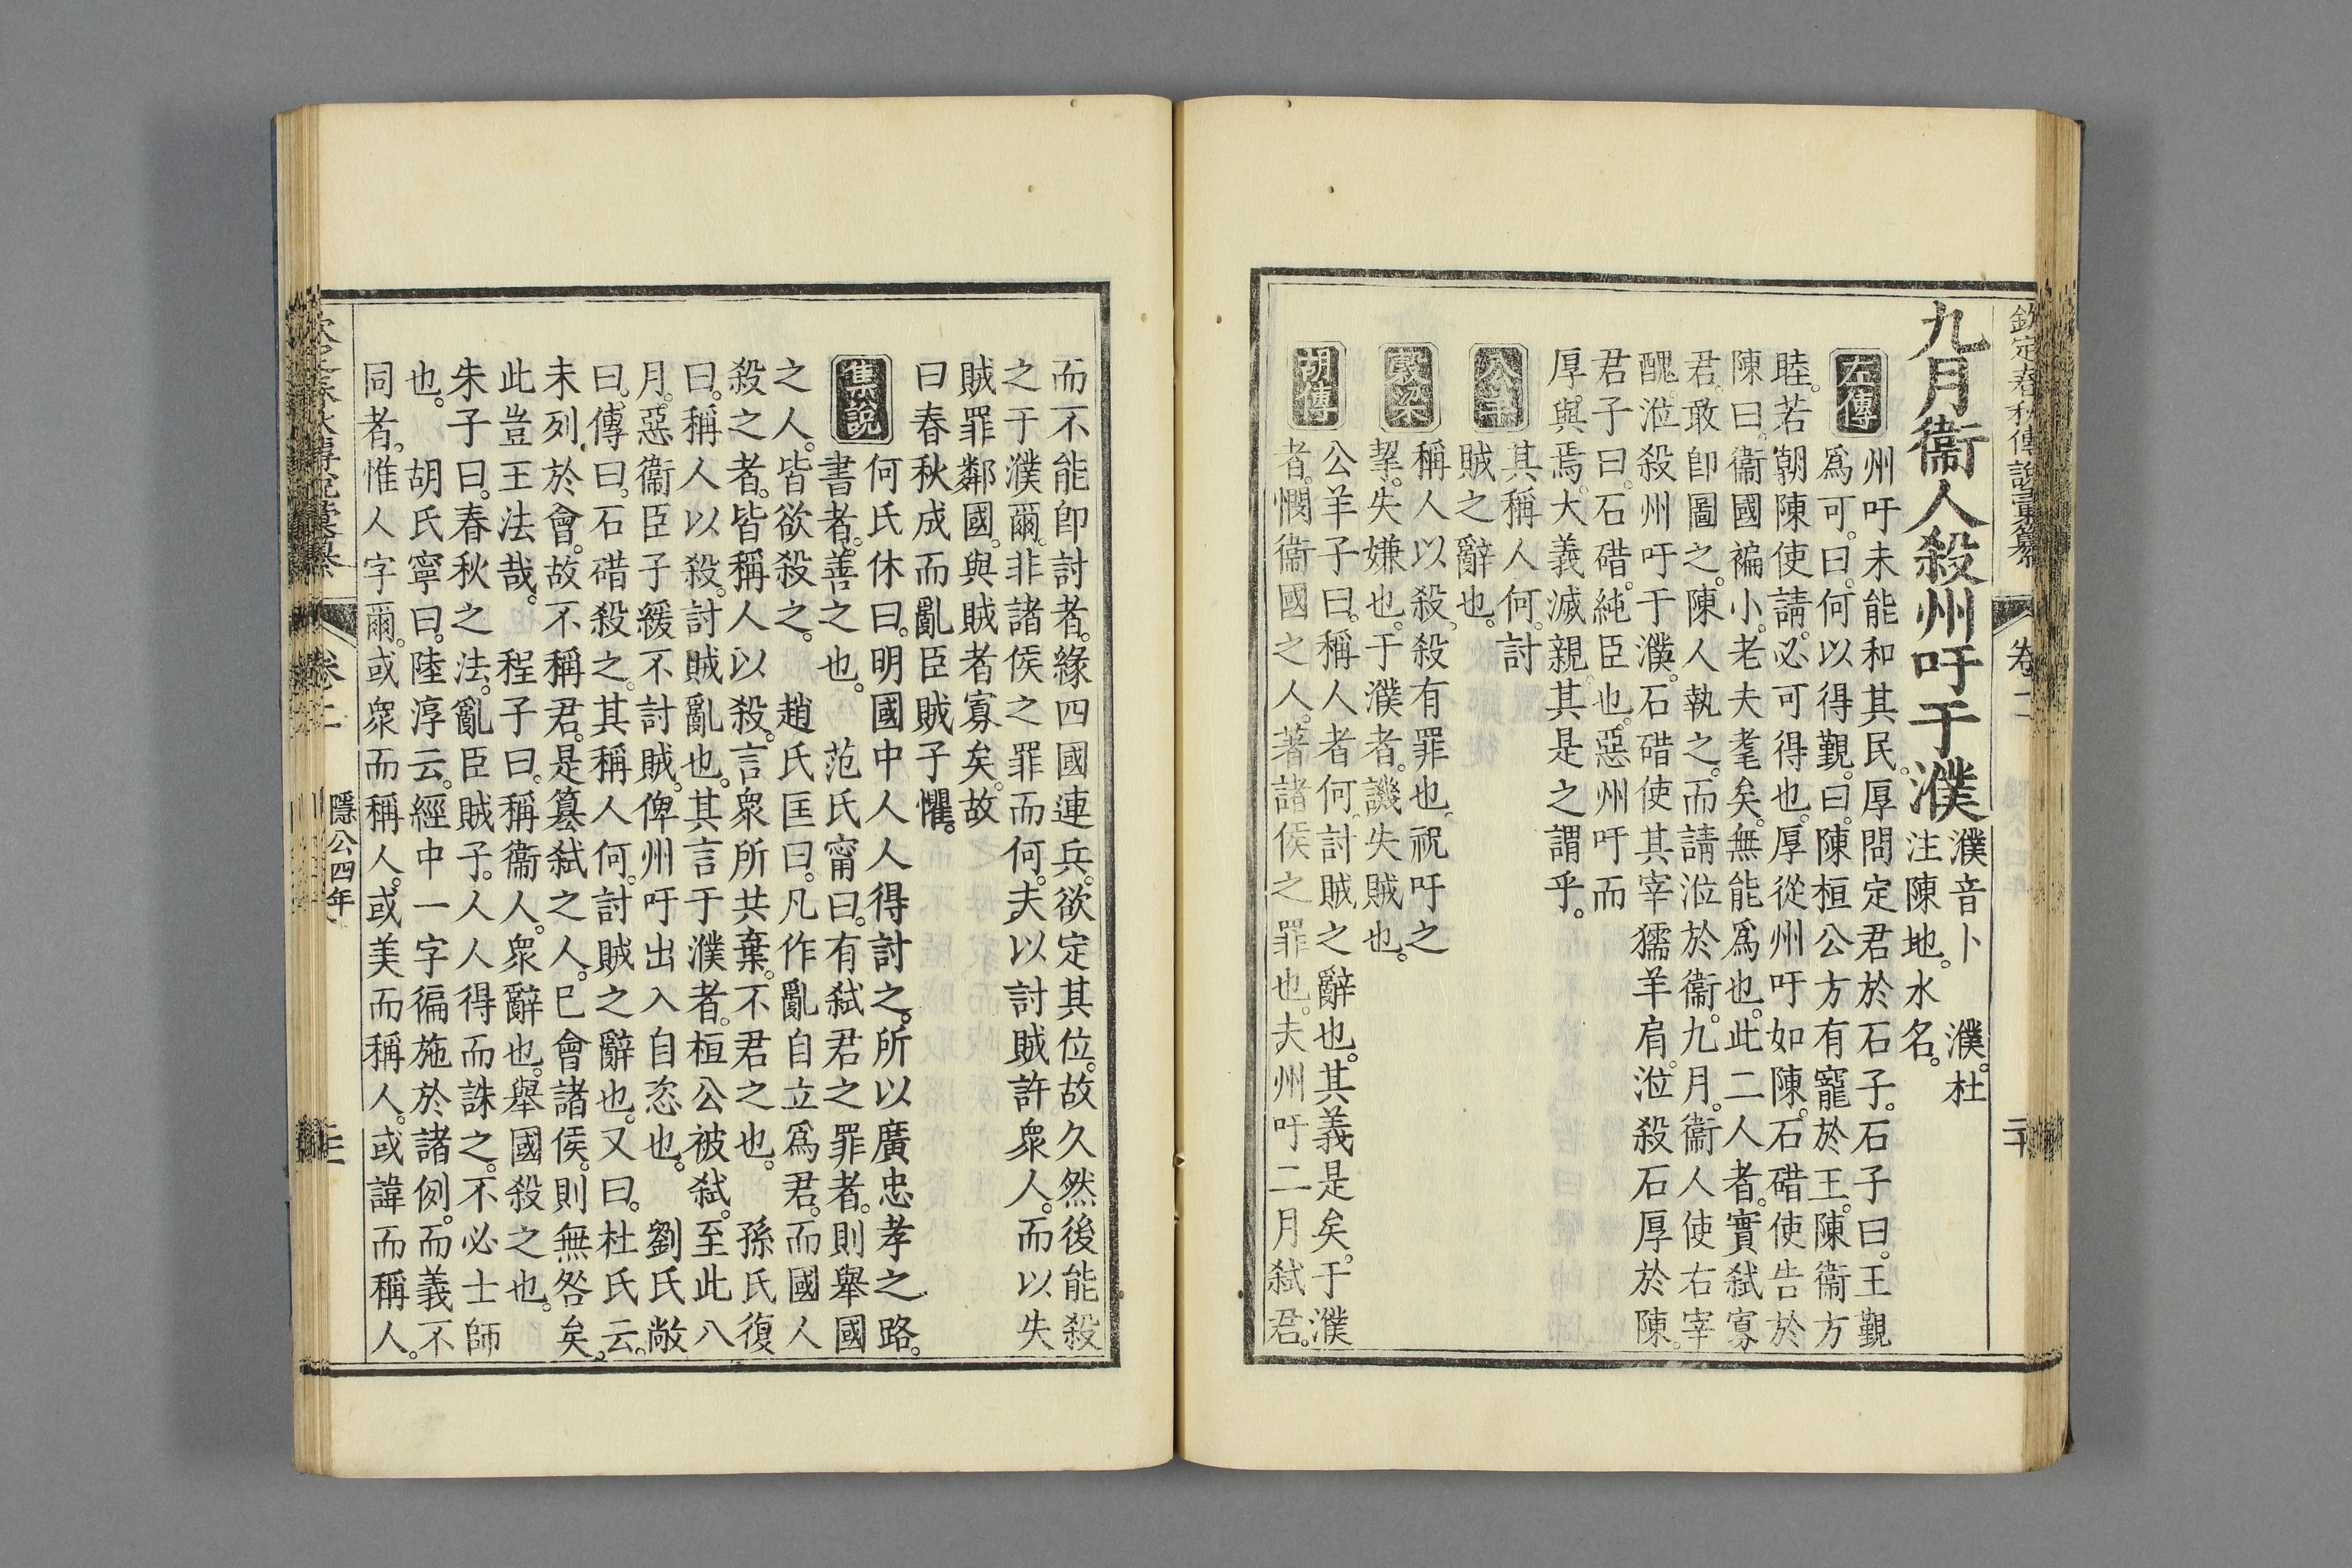 欽定春秋傳說彙纂 卷二
九月衞人殺州吁于濮
濮音卜 濮杜
注陳地水名
左傳
州吁未能和其民厚問定君於石子石子曰王覲
爲可曰何以得覲曰陳桓公方有寵於王陳衞方
睦若朝陳使請必可得也厚從州吁如陳石碏使告於
陳曰衞國褊小老夫耄矣無能爲也此二人者實弑寡
君敢卽圖之陳人執之而請涖於衞九月衞人使右宰
醜涖殺州吁于濮石碏使其宰獳羊肩涖殺石厚於陳
君子曰石碏純臣也惡州吁而
厚與焉大義滅親其是之謂乎
公羊
其稱人何討
賊之辭也
穀梁
稱人以殺殺有罪也祝吁之
挈失嫌也于濮者譏失賊也
胡傳
公羊子曰稱人者何討賊之辭也其義是矣于濮
者憫衞國之人著諸侯之罪也夫州吁二月弑君
而不能卽討者緣四國連兵欲定其位故久然後能殺
之于濮爾非諸侯之罪而何夫以討賊許衆人而以失
賊罪鄰國與賊者寡矣故
曰春秋成而亂臣賊子懼
集說
何氏休曰明國中人人得討之所以廣忠孝之路
書者善之也 范氏甯曰有弑君之罪者則舉國
之人皆欲殺之 趙氏匡曰凡作亂自立爲君而國人
殺之者皆稱人以殺言衆所共棄不君之也 孫氏復
曰稱人以殺討賊亂也其言于濮者桓公被弑至此八
月惡衞臣子緩不討賊俾州吁出入自恣也 劉氏敞
曰傳曰石碏殺之其稱人何討賊之辭也又曰杜氏云
未列於會故不稱君是篡弑之人已會諸侯則無咎矣
此豈王法哉 程子曰稱衞人衆辭也舉國殺之也
朱子曰春秋之法亂臣賊子人人得而誅之不必士師
也 胡氏寧曰陸淳云經中一字徧施於諸例而義不
同者惟人字爾或衆而稱人或美而稱人或諱而稱人
欽定春秋傳說彙纂 卷二 隱公四年